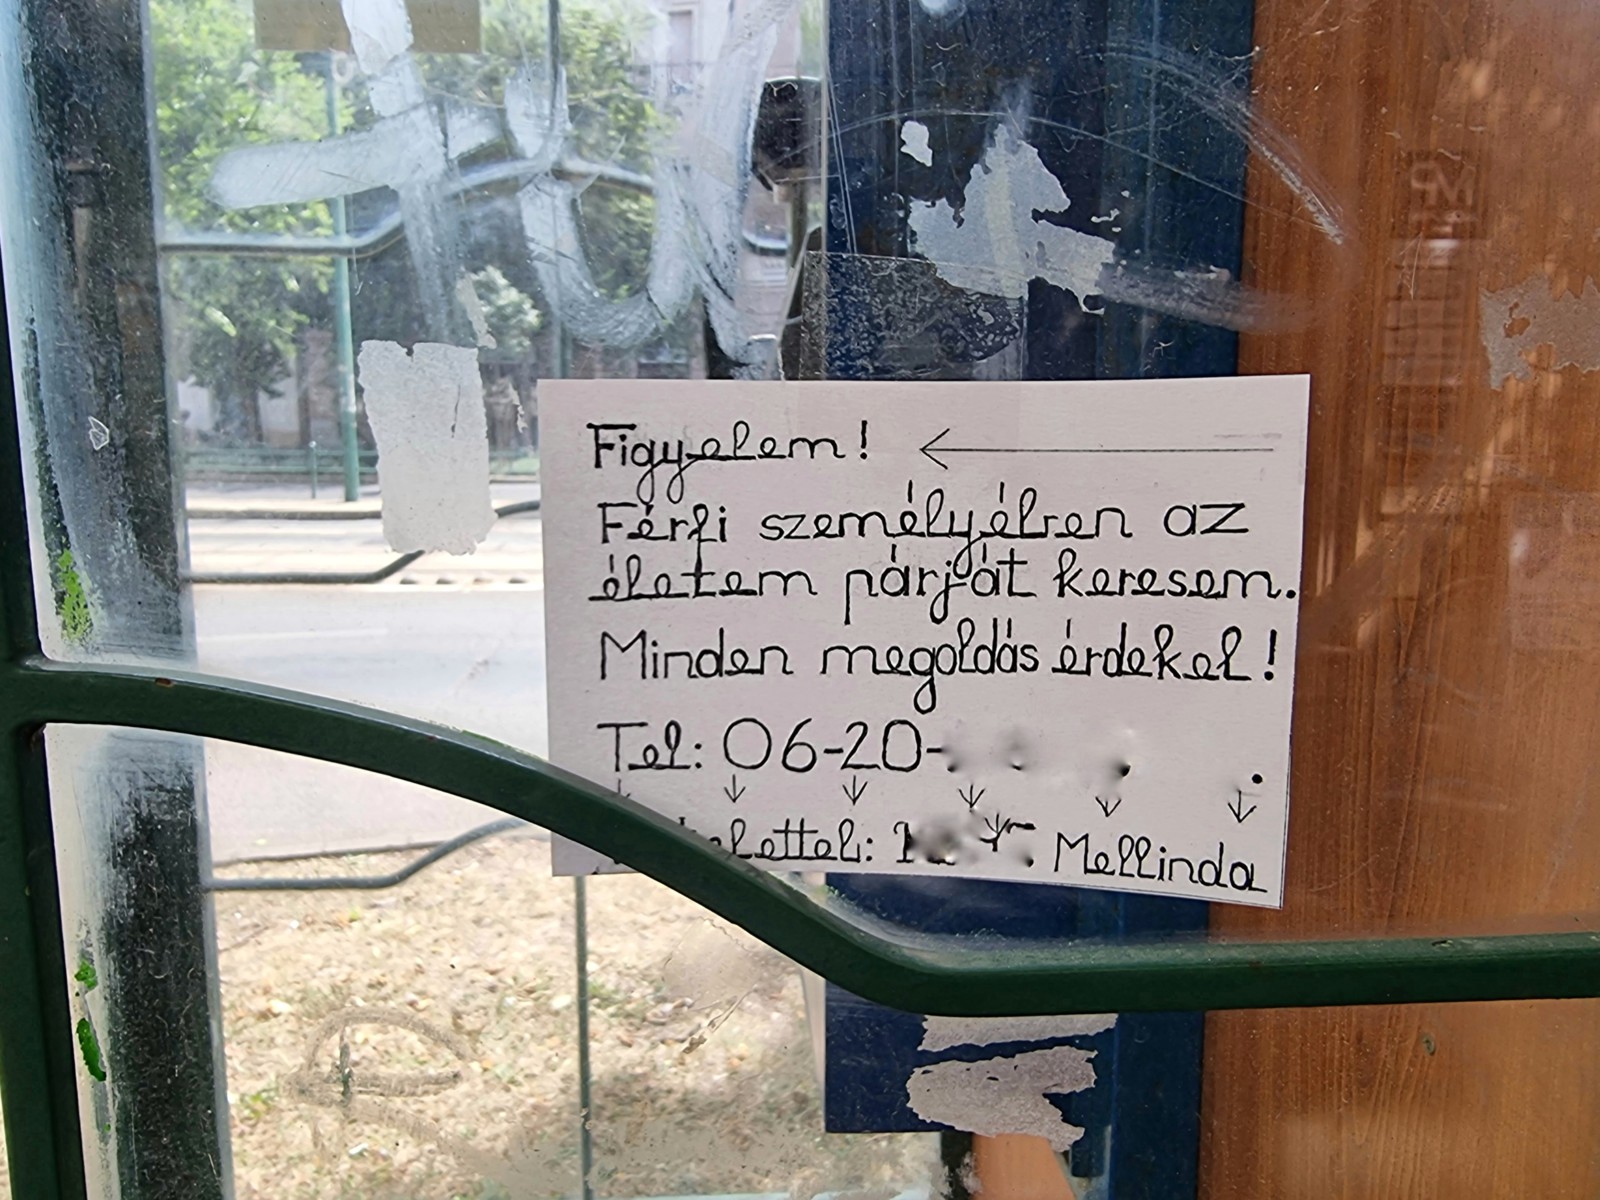 Figyelem!
Férfi személyében az
életem párját keresem.
Minden megoldás érdekel!
Tel: 06-20-
Mellinda